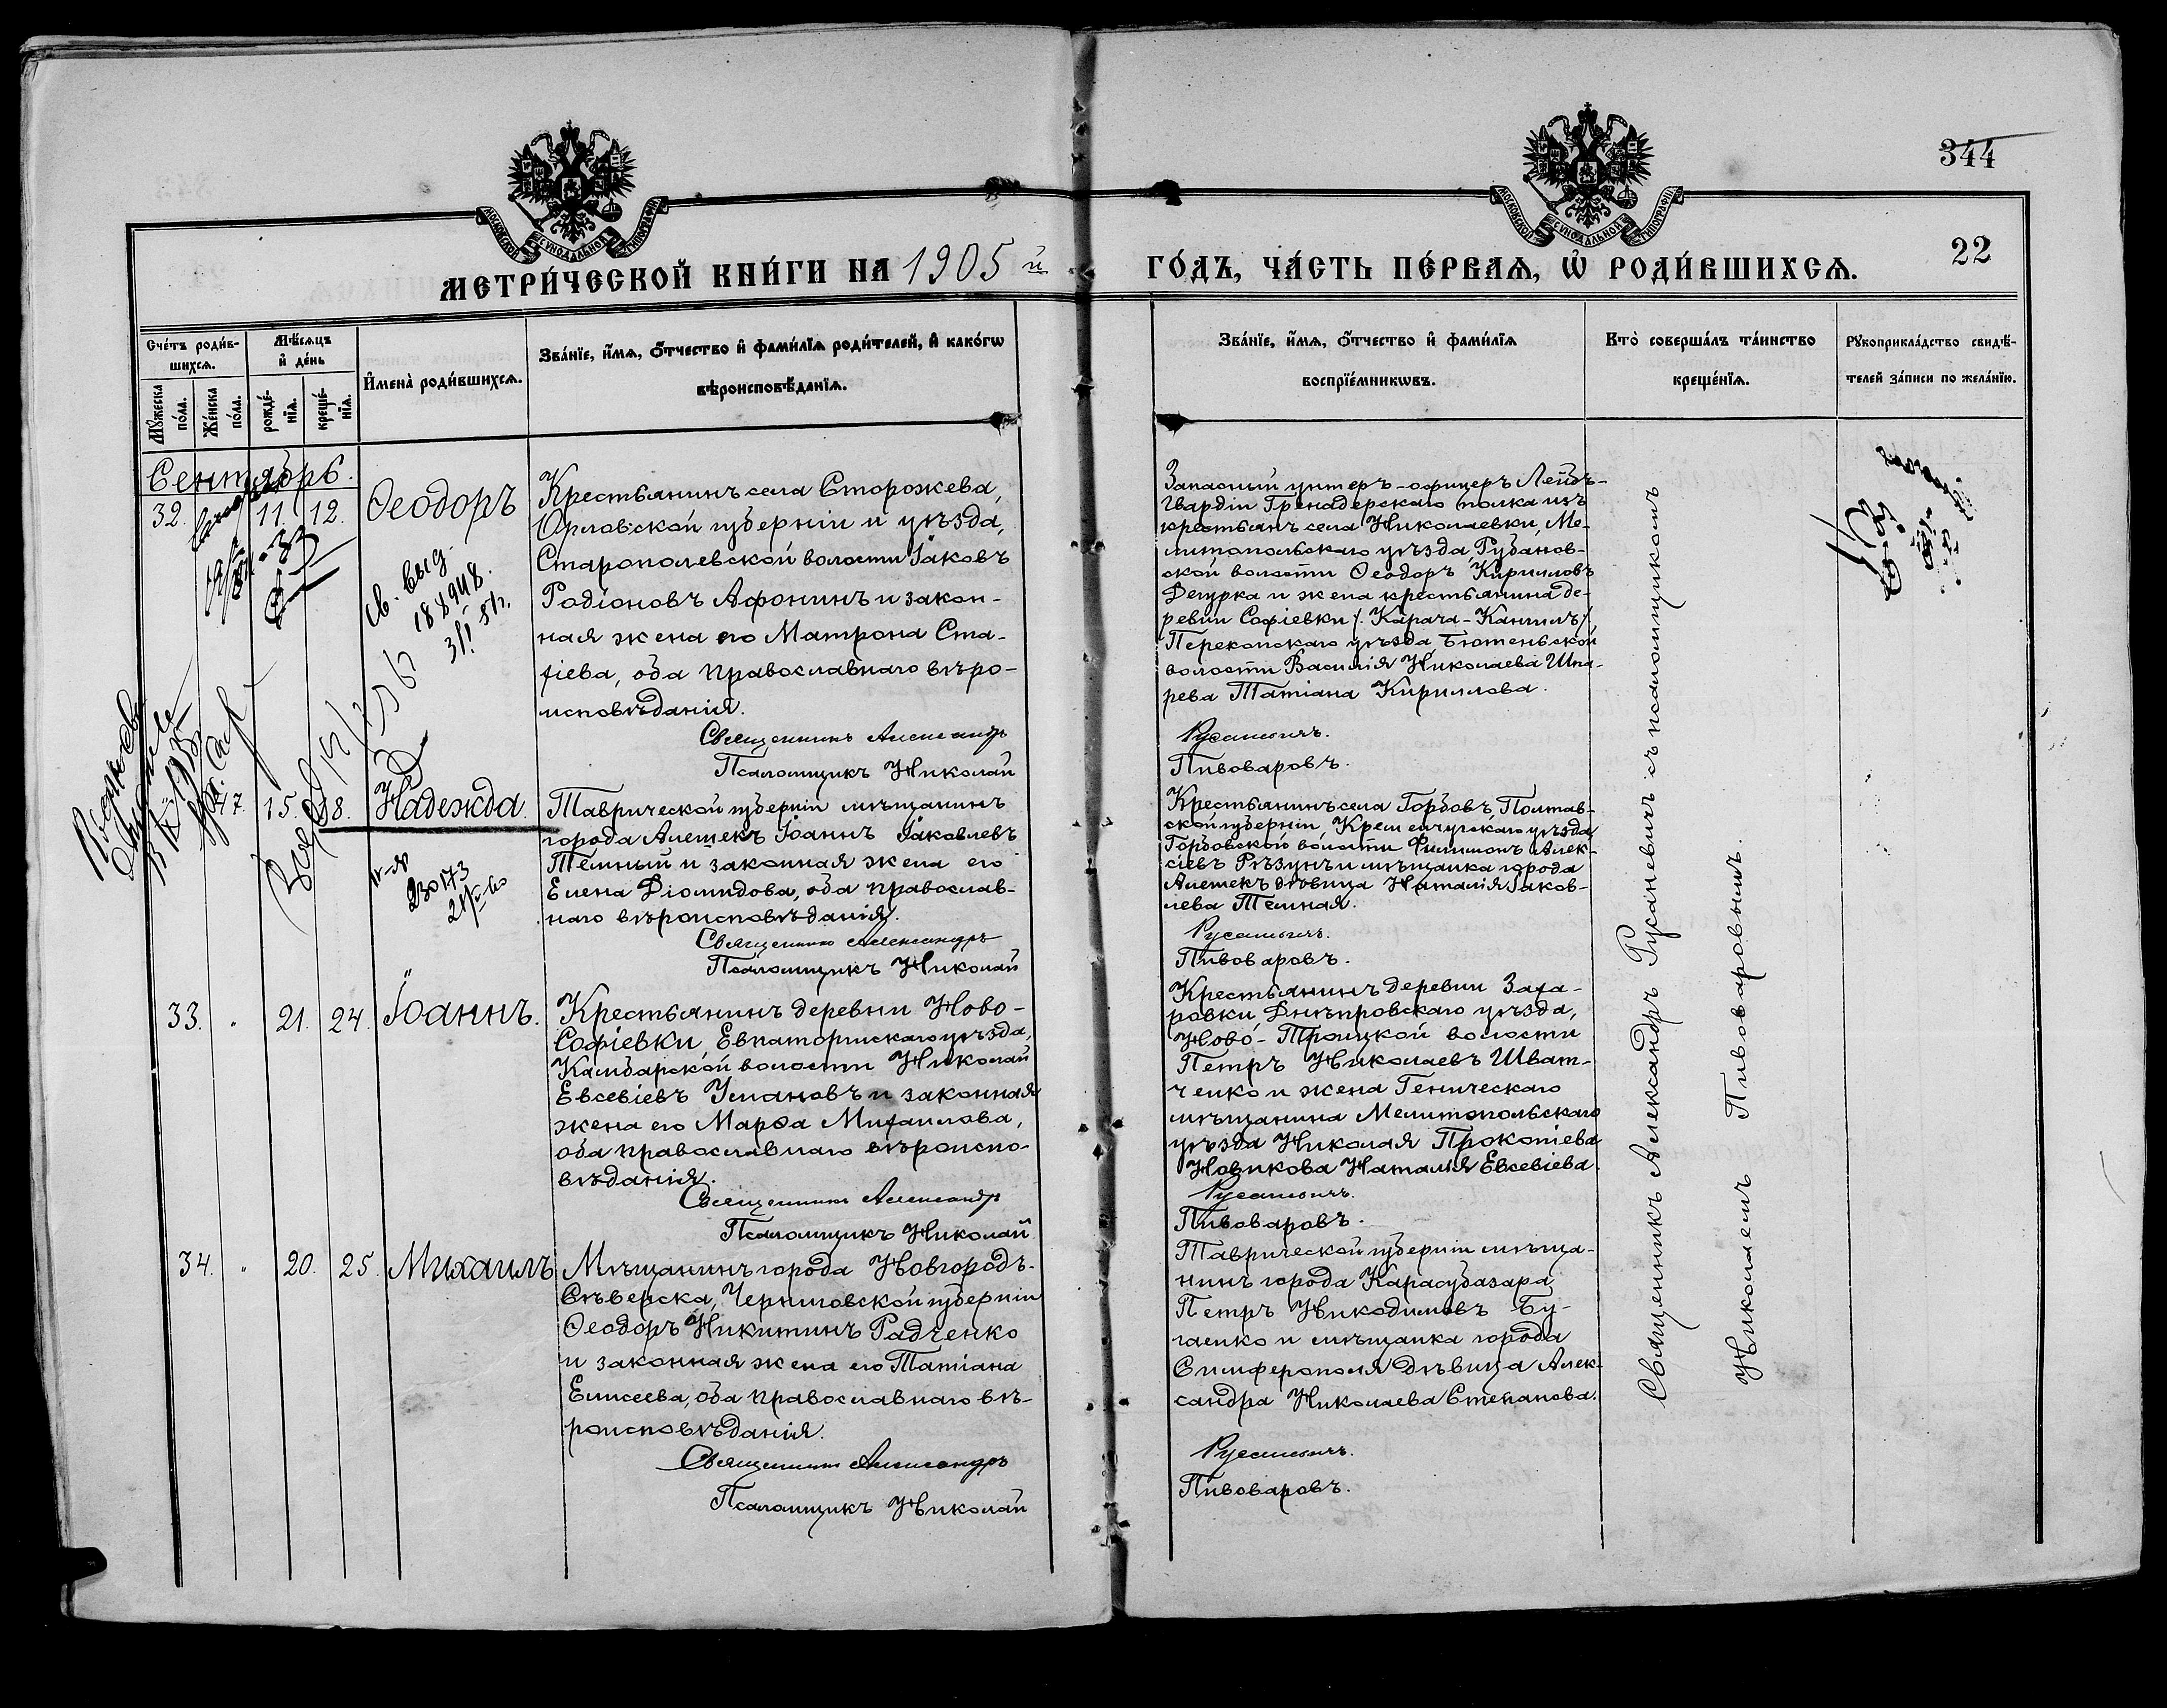 344
МОСКОВСКОЙ СѴНОДАЛЬНОЙ ТИПОГРАФІИ
МОСКОВСКОЙ СѴНОДАЛЬНОЙ ТИПОГРАФІИ
22
МЕТРИ́ЧЕСКОЙ КНИ́ГИ НА 1905 й
ГО́ДЪ, ЧА́СТЬ ПЕ́РВАѦ, Ѿ РОДИ́ВШИХСѦ.
Сче́тъ роди́в-
шихсѧ.
Мꙋ́жеска по́ла.
Же́нска по́ла.
Мѣ́сѧцъ
и҆ де́нь
рожде́-
нїѧ.
креще́-
нїѧ.
И҆мена̀ роди́вшихсѧ.
Зва́нїе, и҆́мѧ, ѻ҆́тчество и҆ фами́лїѧ роди́телей, и҆ како́гѡ
вѣроисповѣ́данїѧ.
Зва́нїе, и҆́мѧ, ѻ҆́тчество и҆ фами́лїѧ
воспрїе́мникѡвъ.
Кто̀ соверша́лъ та́инство
креще́нїѧ.
Рꙋкоприкла́дство свидѣ́-
телей за́писи по жела́нїю.
Сентябрь.
32.
11. 12.
Ѳеодоръ
Крестьянинъ села Сторожева,
Орловской губерніи и уѣзда,
Старополевской волости Іаковъ
Родіоновъ Афонинъ и закон-
ная жена его Матрона Ста-
хіева, оба православнаго вѣро-
исповѣданія.
Священникъ Александръ
Псаломщикъ Николай
Запасный унтеръ-офицеръ Лейбъ-
Гвардіи Гренадерскаго полка изъ
крестьянъ села Николаевки, Ме-
литопольскаго уѣзда, Рубанов-
ской волости Ѳеодоръ Кирилловъ
Дегурка и жена крестьянина де-
ревни Софіевки /. Карача-Кангилъ /,
Перекопскаго уѣзда, Бютеньской
волости Василія Николаева Шпа-
рева Татіана Кириллова.
Русаневичъ.
Пивоваровъ.
св. выд.
188948.
47. 15. 18.
Надежда.
23073
Таврической губерніи мѣщанинъ
города Алешекъ Іоаннъ Іаковлевъ
Темный и законная жена его
Елена Діомидова, оба православ-
наго вѣроисповѣданія.
Священникъ Александръ
Псаломщикъ Николай
Крестьянинъ села Горбовъ, Полтав-
ской губерніи, Кременчугскаго уѣзда,
Горбовской волости Филимонъ Алек-
сіевъ Рѣзунъ и мѣщанка города
Алешекъ дѣвица Наталія Іаков-
лева Темная.
Русаневичъ.
Пивоваровъ.
33. " 21. 24.
Іоаннъ.
Крестьянинъ деревни Ново-
Софіевки, Евпаторійскаго уѣзда,
Камбарской волости Николай
Евсевіевъ Усмановъ и законная
жена его Марѳа Михаилова,
оба православнаго вѣроиспо-
вѣданія.
Священникъ Александръ
Псаломщикъ Николай
Крестьянинъ деревни Заха-
ровки Днѣпровскаго уѣзда,
Ново-Троицкой волости
Петръ Николаевъ Шват-
ченко и жена Геническаго
мѣщанина Мелитопольскаго
уѣзда Николая Прокопіева
Новикова Наталія Евсевіева.
Русаневичъ.
Пивоваровъ.
34. " 20. 25.
Михаилъ
Мѣщанинъ города Новгородъ-
Сѣверска, Черниговской губерніи
Ѳеодоръ Никитинъ Радченко
и законная жена его Татіана
Елисеева, оба православнаго вѣ-
роисповѣданія.
Священникъ Александръ
Псаломщикъ Николай
Таврической губерніи мѣща-
нинъ города Карасубазара
Петръ Никодимовъ Бу-
гаенко и мѣщанка города
Симферополя дѣвица Алек-
сандра Николаева Степанова.
Русаневичъ.
Пивоваровъ.
Священникъ Александръ Русаневичъ съ псаломщикомъ
Николаемъ Пивоваровымъ.